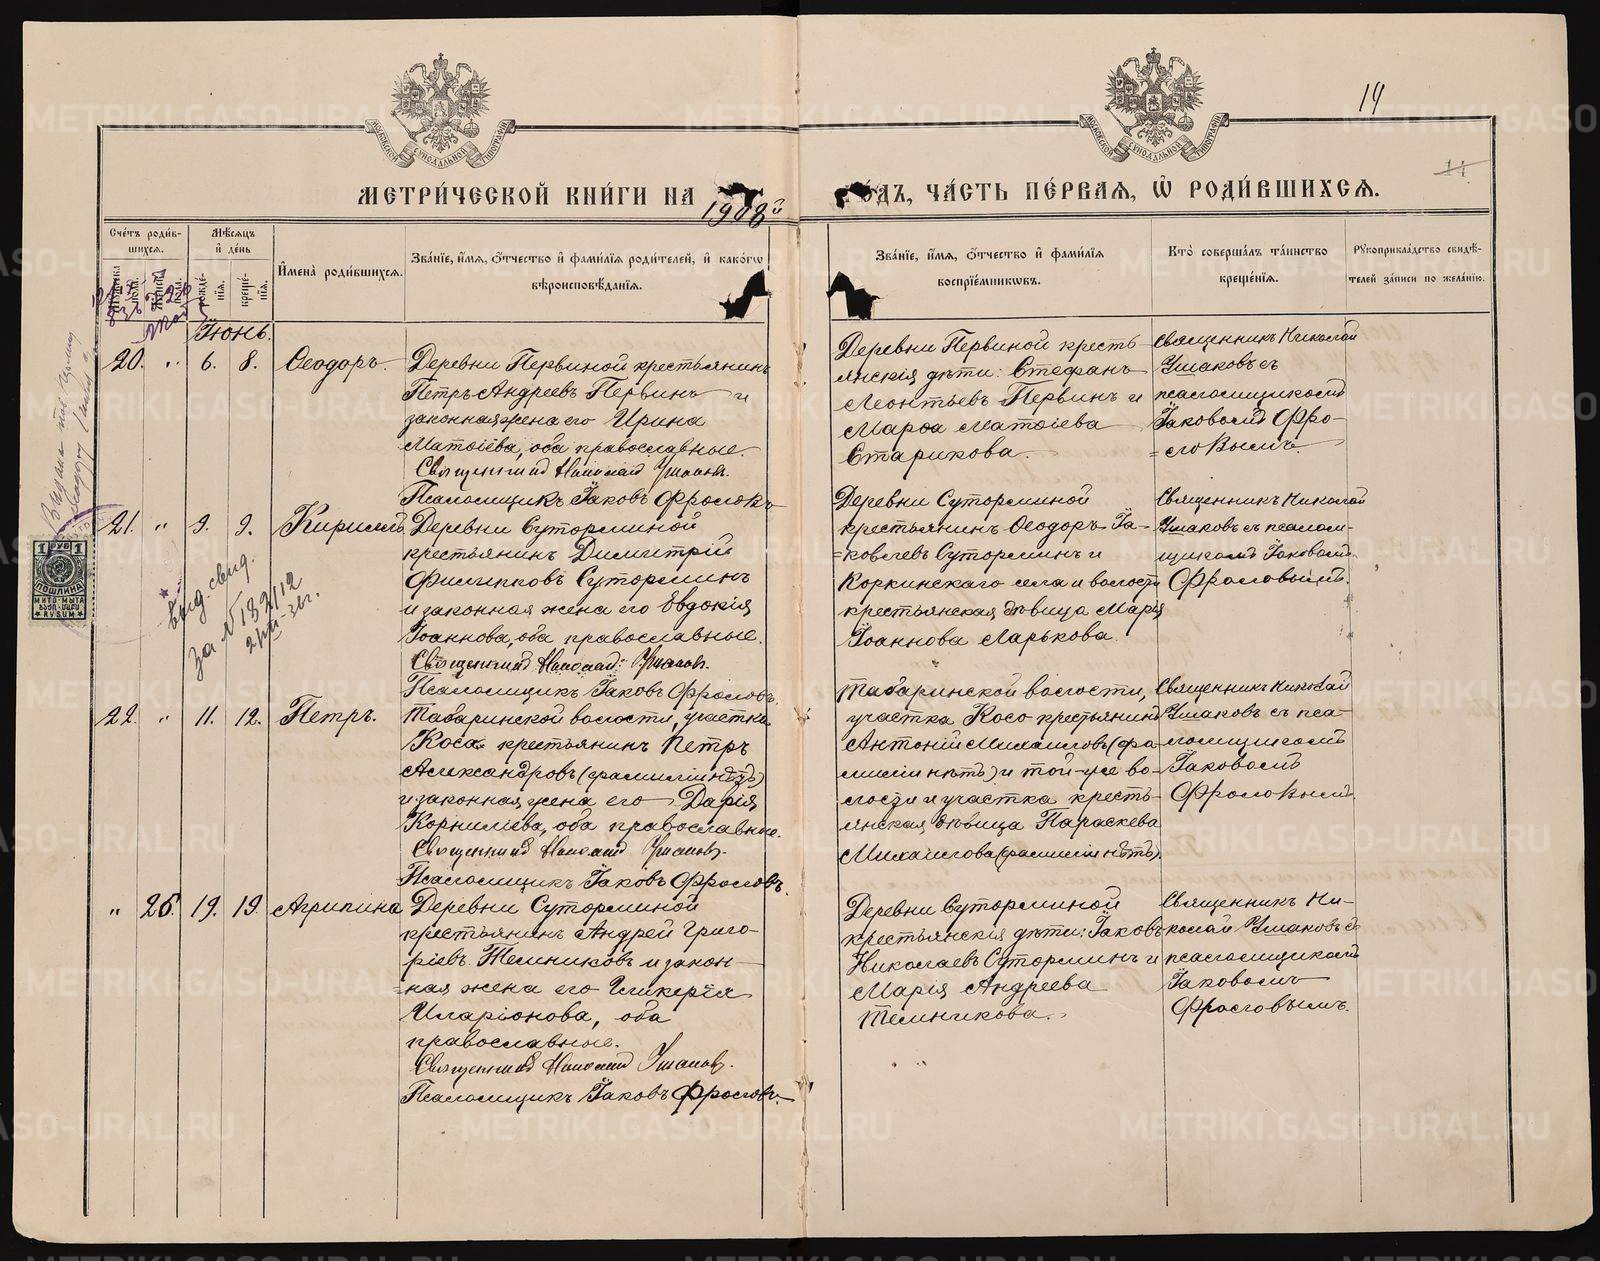 14
11
МОСКОВСКОЙ СѴНОДАЛЬНОЙ ТИПОГРАФІИ
МОСКОВСКОЙ СѴНОДАЛЬНОЙ ТИПОГРАФІИ
МЕТРИ́ЧЕСКОЙ КНИ́ГИ НА 1908й ГО́ДЪ, ЧА́СТЬ ПЕ́РВАЯ, Ѡ РОДИ́ВШИХСѦ.
Сче́тъ роди́в-
шихся.
Мѣ́сяцъ
и де́нь
рожде́-
нія.
креще́-
нія.
Имена̀ роди́вшихся.
Зва́нїе, и́мя, ѻ́тчество и фами́лїя роди́телей, и како́гѡ
вѣроисповѣ́данїя.
Зва́нїе, и́мя, ѻ́тчество и фами́лїя
воспрїе́мникѡвъ.
Кто̀ соверша́лъ та́инство
креще́нїя.
Рꙋкоприкла́дство свидѣ́-
телей за́писи по жела́нїю.
Іюнь.
20. " 6. 8. Ѳеодоръ.
Деревни Первиной крестьянинъ
Петръ Андреевъ Первинъ и
законная жена его Ирина
Матѳіева, оба православные.
Священникъ Николай Ушаковъ.
Псаломщикъ Іаковъ Фроловъ
Деревни Первиной кресть-
янскія дѣти: Стефанъ
Леонтьевъ Первинъ и
Марѳа Матѳіева
Старикова.
Священникъ Николай
Ушаковъ съ
псаломщикомъ
Іаковомъ Фро-
=ловымъ.
21. " 9. 9. Кириллъ
Деревни Суторминой
крестьянинъ Димитрій
Филипповъ Сутормінъ
и законная жена его Евдокія
Іоаннова, оба православные.
Священникъ Николай Ушаковъ.
Псаломщикъ Іаковъ Фроловъ.
Деревни Суторминой
крестьянинъ Ѳеодоръ Іа-
=ковлевъ Суторминъ и
Коркинскаго села и волости
крестьянская дѣвица Марія
Іоаннова Ларькова.
Священникъ Николай
Ушаковъ съ псалом-
щикомъ Іаковомъ
Фроловымъ.
выд. свид.
за №
1 РУБ 1
ПОШЛИНА
22. " 11. 12. Петръ.
Табаринской волости, участка
Коса крестьянинъ Петръ
Александровъ (фамиліи нѣтъ)
и законная жена его Дарія
Корниліева, оба православные.
Священникъ Николай Ушаковъ.
Псаломщикъ Іаковъ Фроловъ.
Табаринской волости,
участка Косо крестьянинъ
Антоній Михаиловъ (фа-
миліи нѣтъ) и той-же во-
лости и участка кресть-
янская дѣвица Параскева
Михаилова (фамиліи нѣтъ).
Священникъ Николай
Ушаковъ съ пса-
ломщикомъ
Іаковомъ
Фроловымъ.
" 26. 19. 19. Агрипина
Деревни Суторминой
крестьянинъ Андрей Григо-
ріевъ Телпниковъ и закон-
=ная жена его Гликерія
Иларіонова, оба
православные.
Священникъ Николай Ушаковъ.
Псаломщикъ Іаковъ Фроловъ.
Деревни Суторминой
крестьянскія дѣти: Іаковъ
Николаевъ Суторминъ и
Марія Андреева
Телпникова.
Священникъ Ни-
колай Ушаковъ съ
псаломщикомъ
Іаковомъ
Фроловымъ.
METRIKI.GASO-URAL.RU